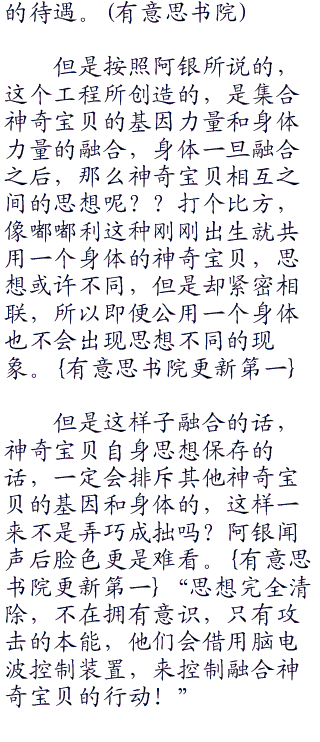 的待遇。(有意思书院)
但是按照阿银所说的，
这个工程所创造的，是集合
神奇宝贝的基因力量和身体
力量的融合，身体一旦融合
之后，那么神奇宝贝相互之
间的思想呢？？打个比方，
像嘟嘟利这种刚刚出生就共
用一个身体的神奇宝贝，思
想或许不同，但是却紧密相
联，所以即便公用一个身体
也不会出现思想不同的现
象。{有意思书院更新第一}
但是这样子融合的话，
神奇宝贝自身思想保存的
话，一定会排斥其他神奇宝
贝的基因和身体的，这样一
来不是弄巧成拙吗？阿银闻
声后脸色更是难看。{有意思
书院更新第一}“思想完全清
除，不在拥有意识，只有攻
击的本能，他们会借用脑电
波控制装置，来控制融合神
奇宝贝的行动！”